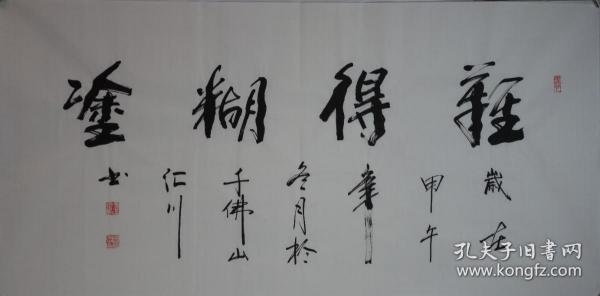 難得糊塗
歲在
甲午
年
冬月於
千佛山
仁川
书
孔夫子旧书网
www.kongfz.com